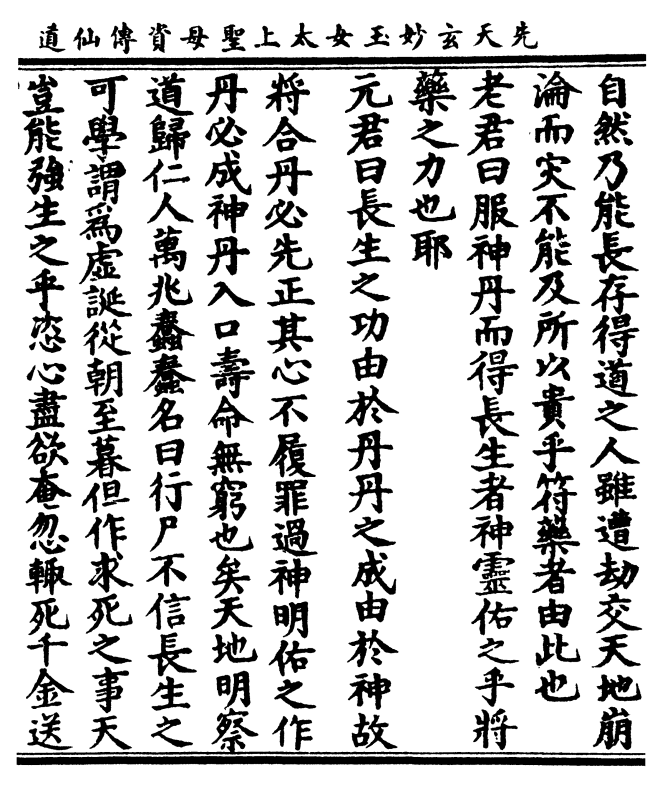 先天玄妙玉女太上聖母資傳仙道
自然乃能長存得道之人雖遭劫交天地崩
淪而灾不能及所以貴乎符藥者由此也
老君曰服神丹而得長生者神靈佑之乎將
藥之力也耶
元君曰長生之功由於丹丹之成由於神故
將合丹必先正其心不履罪過神明佑之作
丹必成神丹入口壽命無窮也矣天地明察
道歸仁人萬兆蠢蠢名曰行尸不信長生之
可學謂爲虛誕從朝至暮但作求死之事天
豈能強生之乎恣心盡欲奄忽輙死千金送